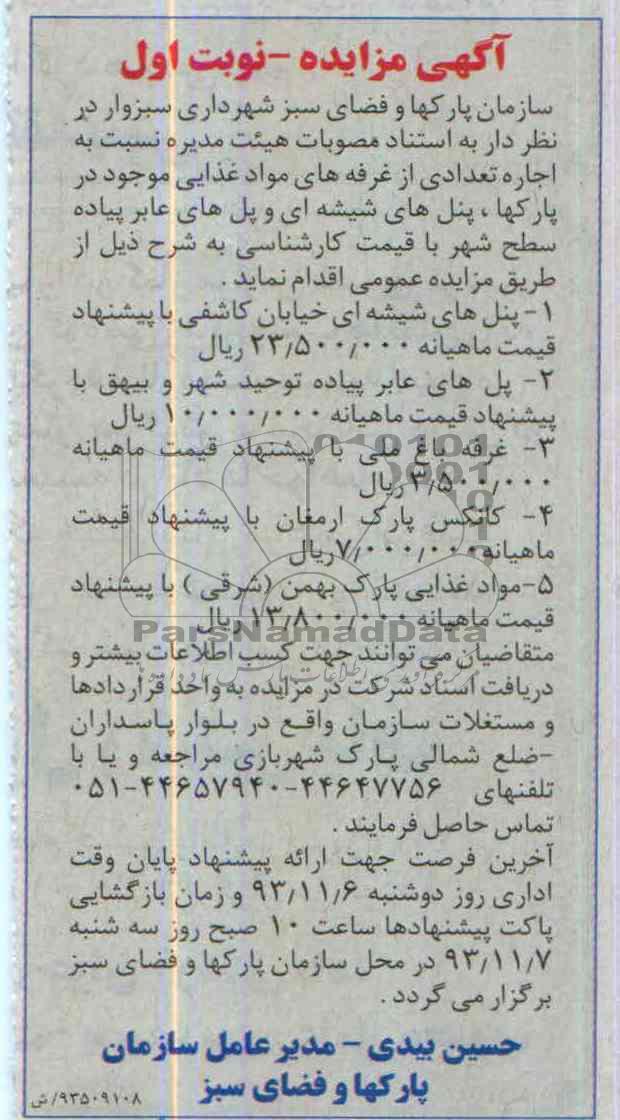 آگهی مزایده -نوبت اول
سازمان پارکها و فضای سبز شهرداری سبزوار در
نظر دار به استناد مصوبات هیئت مدیره نسبت به
اجاره تعدادی از غرفه های مواد غذایی موجود در
پارکها ، پنل های شیشه ای و پل های عابر پیاده
سطح شهر با قیمت کارشناسی به شرح ذیل از
طریق مزایده عمومی اقدام نماید .
۱- پنل های شیشه ای خیابان کاشفی با پیشنهاد
قیمت ماهیانه ۲۳/۵۰۰/۰۰۰ ریال
۲- پل های عابر پیاده توحید شهر و بیهق با
پیشنهاد قیمت ماهیانه ۱۰/۰۰۰/۰۰۰ ریال
۳- غرفه باغ ملی با پیشنهاد قیمت ماهیانه
۳/۵۰۰/۰۰۰ ریال
۴- کانکس پارک ارمغان با پیشنهاد قیمت
ماهیانه ۷/۰۰۰/۰۰۰ ریال
۵-مواد غذایی پارک بهمن (شرقی ) با پیشنهاد
قیمت ماهیانه ۱۳/۸۰۰/۰۰۰ ریال
ParsNamadData
متقاضیان می توانند جهت کسب اطلاعات بیشتر و
دریافت اسناد شرکت در مزایده به واحد قراردادها
و مستغلات سازمان واقع در بلوار پاسداران
-ضلع شمالی پارک شهربازی مراجعه و یا با
تلفنهای ۴۴۶۴۷۷۵۶-۴۴۶۵۷۹۴۰-۰۵۱
تماس حاصل فرمایند .
آخرین فرصت جهت ارائه پیشنهاد پایان وقت
اداری روز دوشنبه ۹۳/۱۱/۶ و زمان بازگشایی
پاکت پیشنهادها ساعت ۱۰ صبح روز سه شنبه
۹۳/۱۱/۷ در محل سازمان پارکها و فضای سبز
برگزار می گردد .
حسین بیدی - مدیر عامل سازمان
پارکها و فضای سبز
۹۳۵۰۹۱۰۸/ش